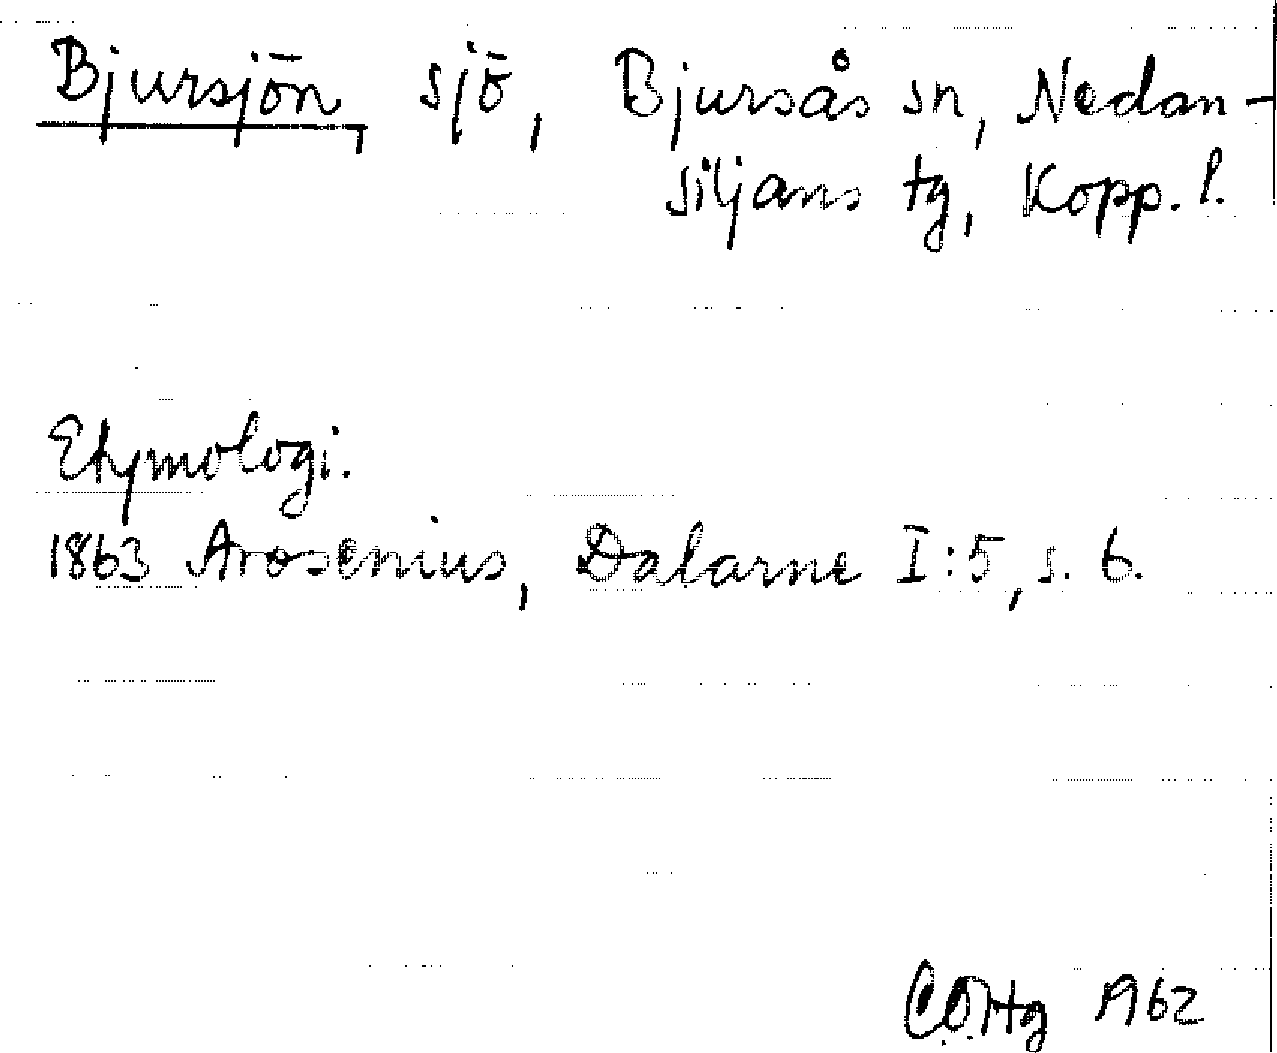 Bjursjön, sjö, Bjursås sn, Nedan-
siljans tg, Kopp. l.
Etymologi.
1863 Arosenius, Dalarne I:5, s. 6.
1962